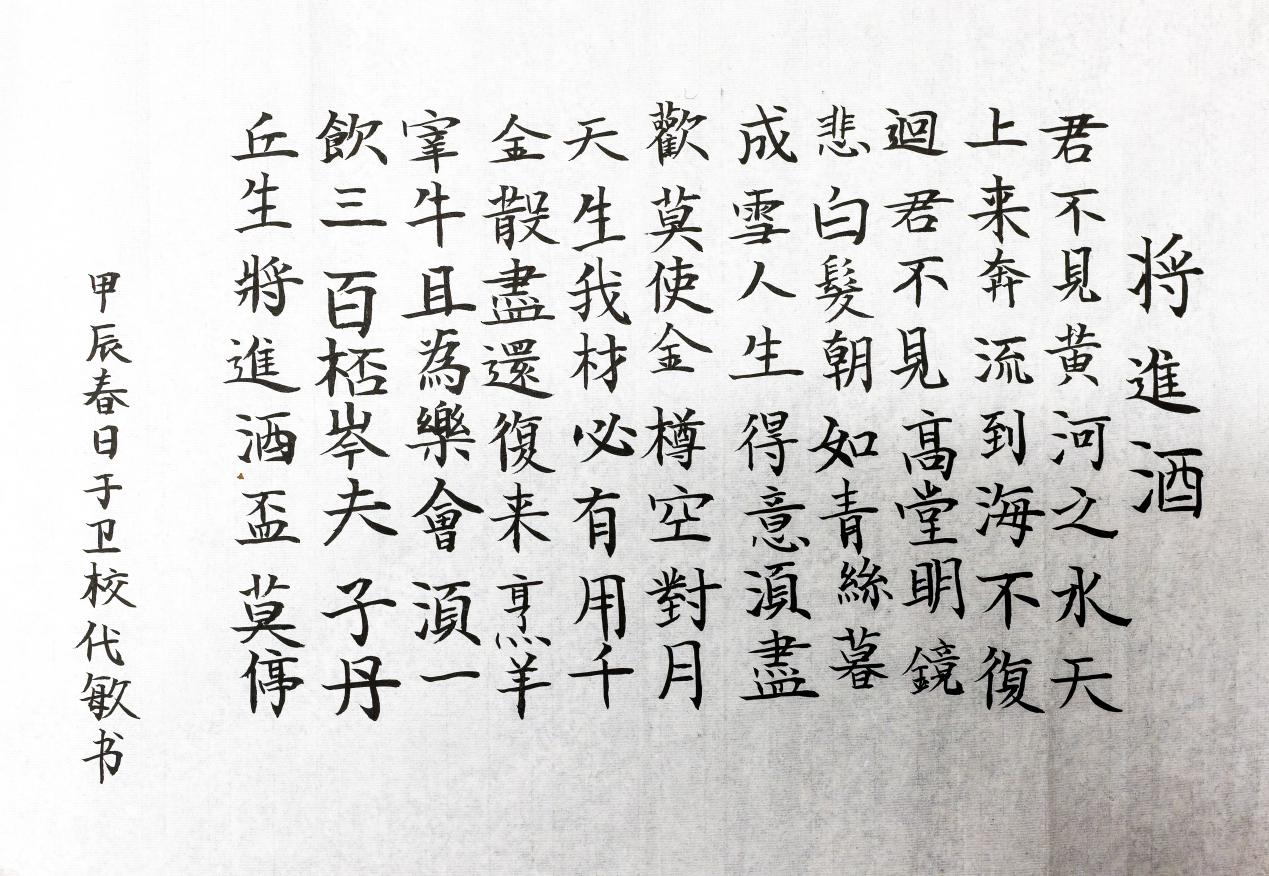 将進酒
君不見黄河之水天
上来奔流到海不復
迴君不見高堂明鏡
悲白髮朝如青絲暮
成雪人生得意湏盡
歡莫使金樽空對月
天生我材必有用千
金散盡還復来烹羊
宰牛且為樂會湏一
飲三百桮岑夫子丹
丘生將進酒盃莫停
甲辰春日于卫校代敏书